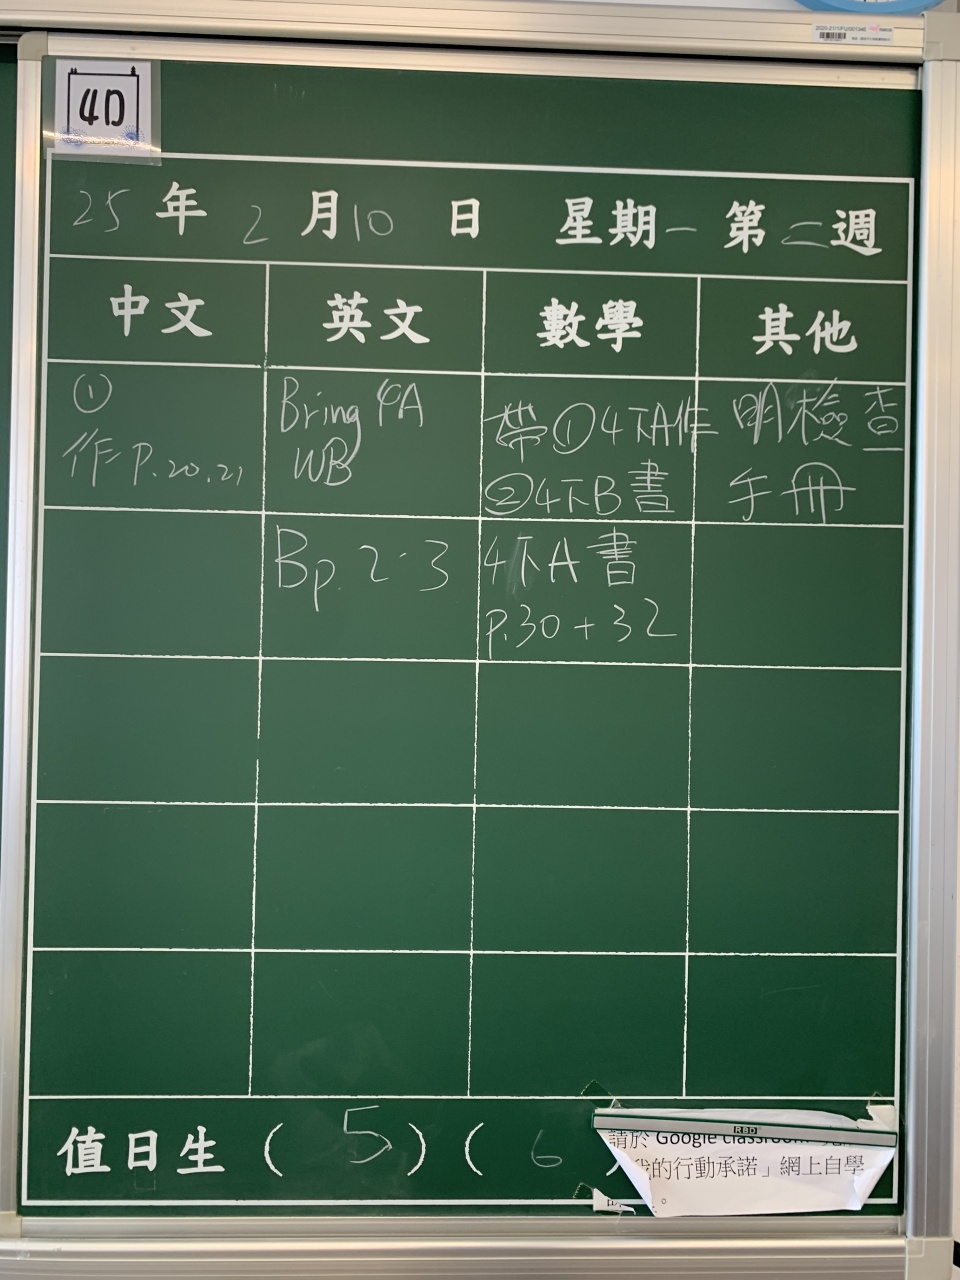 4D
25年2月10日 星期一 第二週
中文 英文 數學 其他
①
作P.20.21
Bring 4A
WB
Bp.2-3
帶①4下A作
②4下B書
4下A書
P.30+32
明檢查
手冊
值日生(5)(6)
請於 Google Classroom
我的行動承諾」網上自學